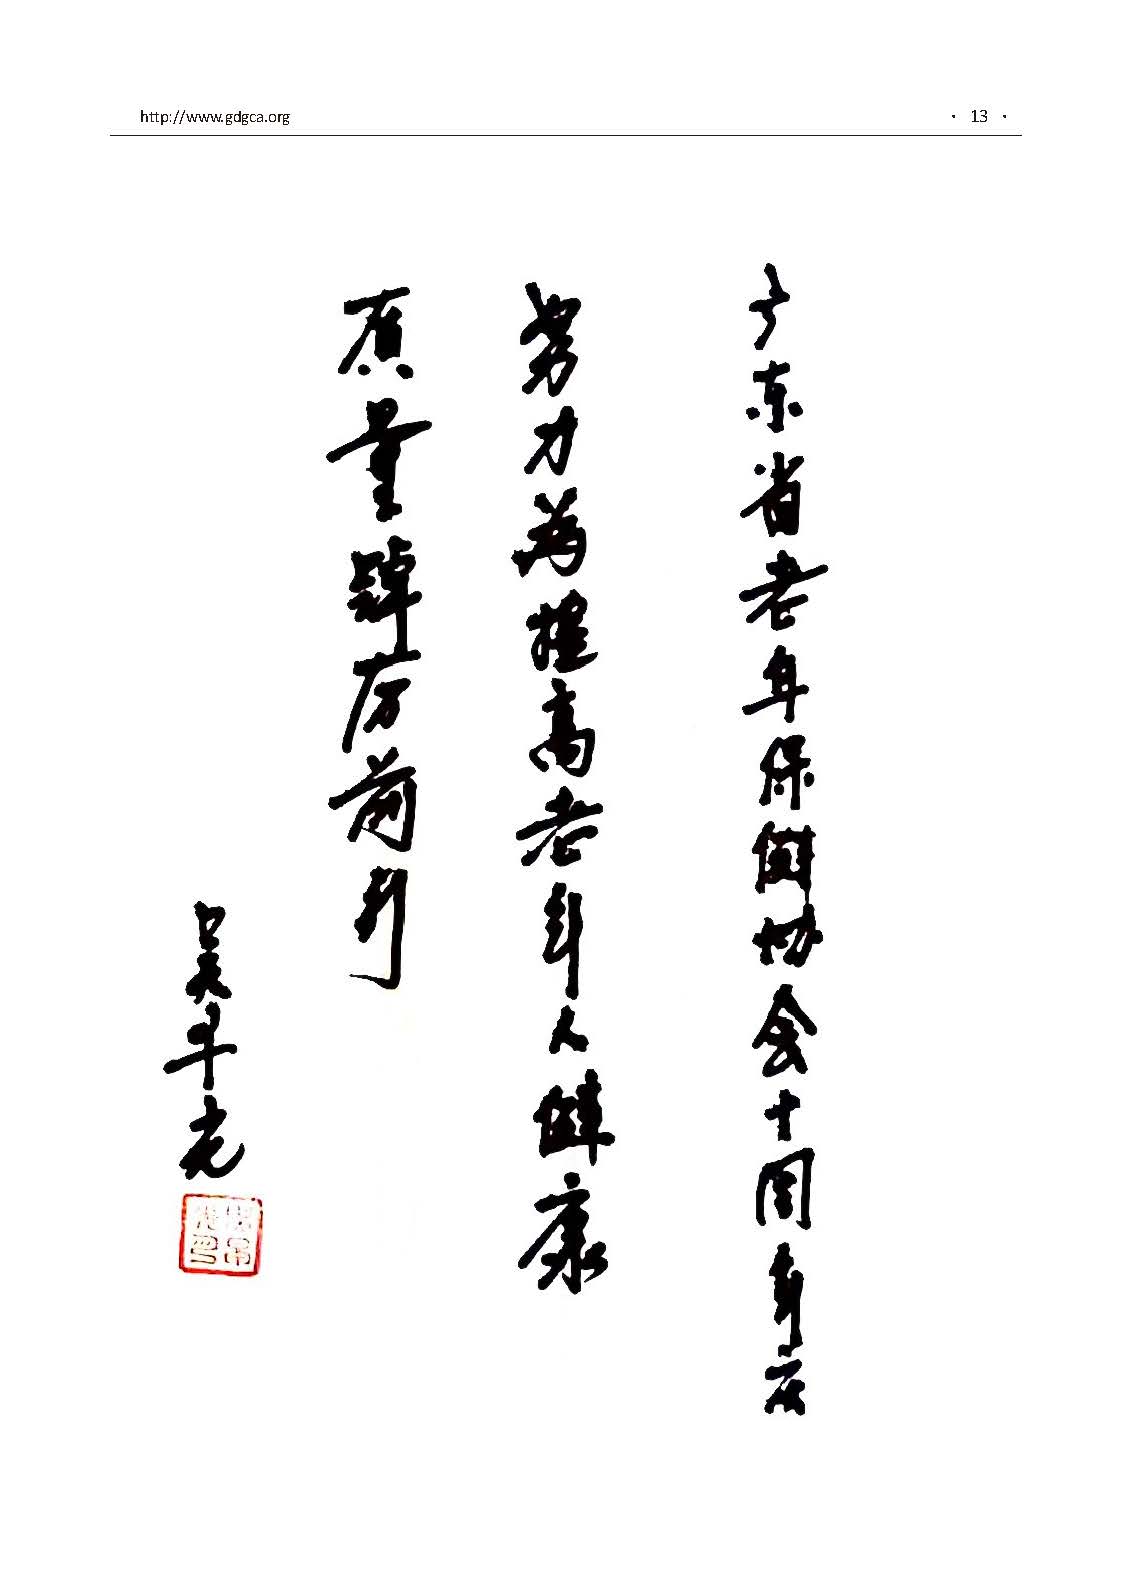 http://www.gdgca.org
· 13 ·
广东省老年保健协会十周年庆
努力为提高老年人健康
质量踔厉前行
吴平光